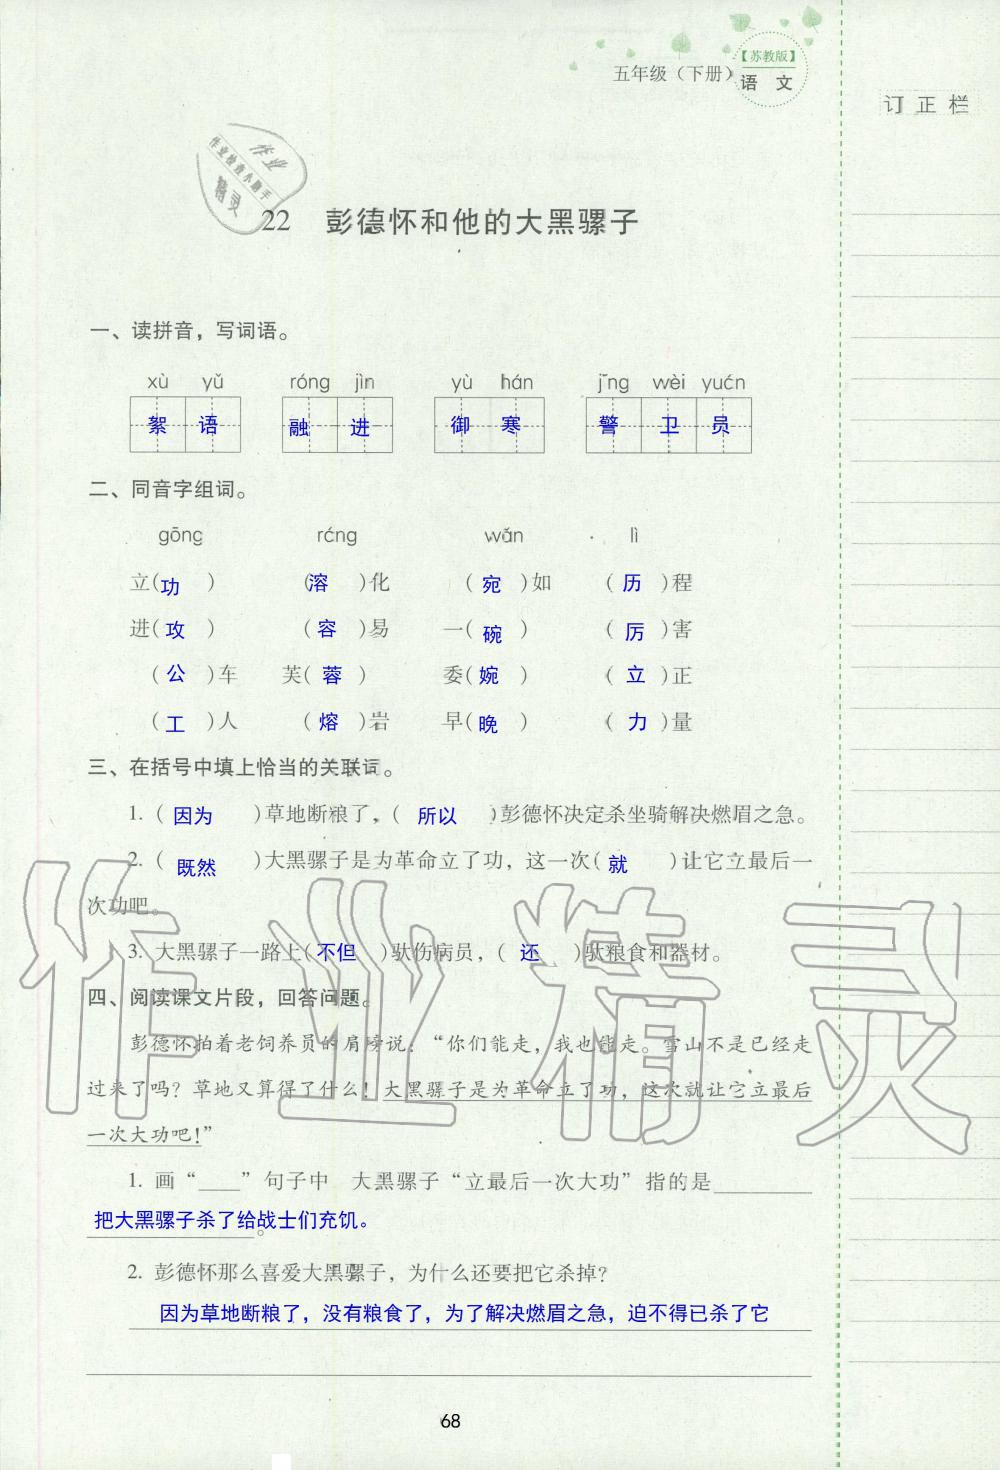 【苏教版】
五年级（下册）
语 文
订 正 栏
作业
作业检查小助手
精灵
22 彭德怀和他的大黑骡子
一、读拼音，写词语。
xù yǔ róng jìn yù hán jǐng wèi yuán
絮 语 融 进 御 寒 警 卫 员
二、同音字组词。
gōng róng wǎn lì
立(功) (溶)化 (宛)如 (历)程
进(攻) (容)易 一(碗) (厉)害
(公)车 芙(蓉) 委(婉) (立)正
(工)人 (熔)岩 早(晚) (力)量
三、在括号中填上恰当的关联词。
1. (因为)草地断粮了，(所以)彭德怀决定杀坐骑解决燃眉之急。
2. (既然)大黑骡子是为革命立了功，这一次(就)让它立最后一
次功吧。
3. 大黑骡子一路上(不但)驮伤病员，(还)驮粮食和器材。
四、阅读课文片段，回答问题。
彭德怀拍着老饲养员的肩膀说：“你们能走，我也能走。雪山不是已经走
过来了吗？草地又算得了什么！大黑骡子是为革命立了功，这次就让它立最后
一次大功吧！”
1. 画“____”句子中 大黑骡子“立最后一次大功”指的是________
把大黑骡子杀了给战士们充饥。
。
2. 彭德怀那么喜爱大黑骡子，为什么还要把它杀掉？
因为草地断粮了，没有粮食了，为了解决燃眉之急，迫不得已杀了它
68
作业精灵